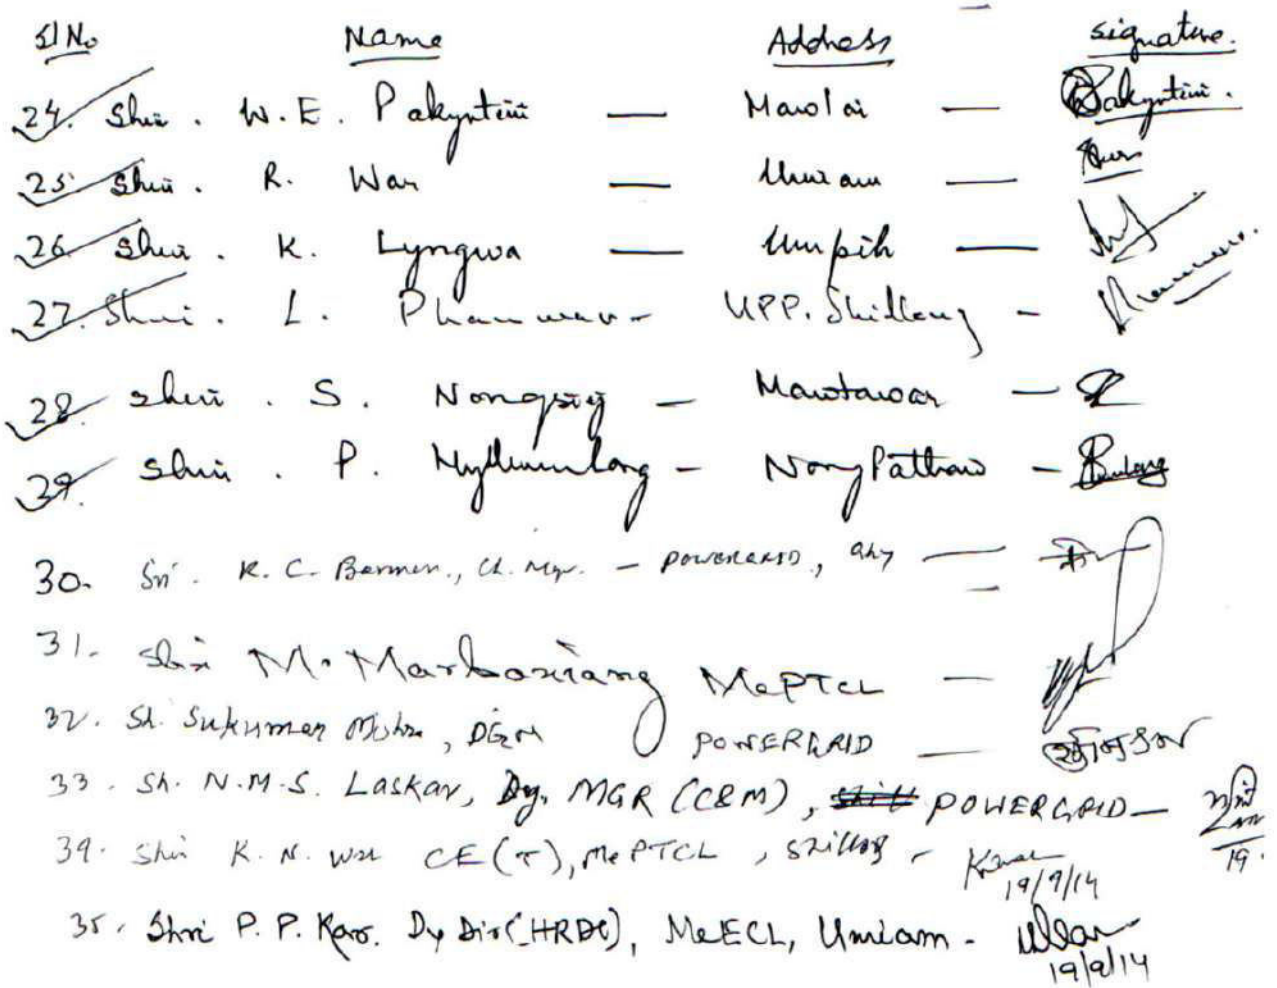 Sl No Name Address Signature.
24. Shri. W.E. Pakyntein — Mawlai — Pakyntein.
25. Shri. R. War — Umiam —
26. Shri. K. Lyngwa — Umpih —
27. Shri. L. Phanwar - UPP. Shillong -
28. Shri. S. Nongsiej — Mawtawar —
29. Shri. P. - NongPathaw -
30. Sri. K. C. Barman, Ch. Mgr. - POWERGRID, Ghy —
31. Shri M. Marbaniang MePTCL —
32. Sh. Sukumar Mishra, DGM POWERGRID —
33. Sh. N.M.S. Laskar, Dy. MGR (C&M), POWERGRID — 19.
34. Shri K. N. War CE(T), MePTCL, Shillong - 19/9/14
35. Shri P. P. Kar. Dy Dir(HRDC), MeECL, Umiam - 19/9/14